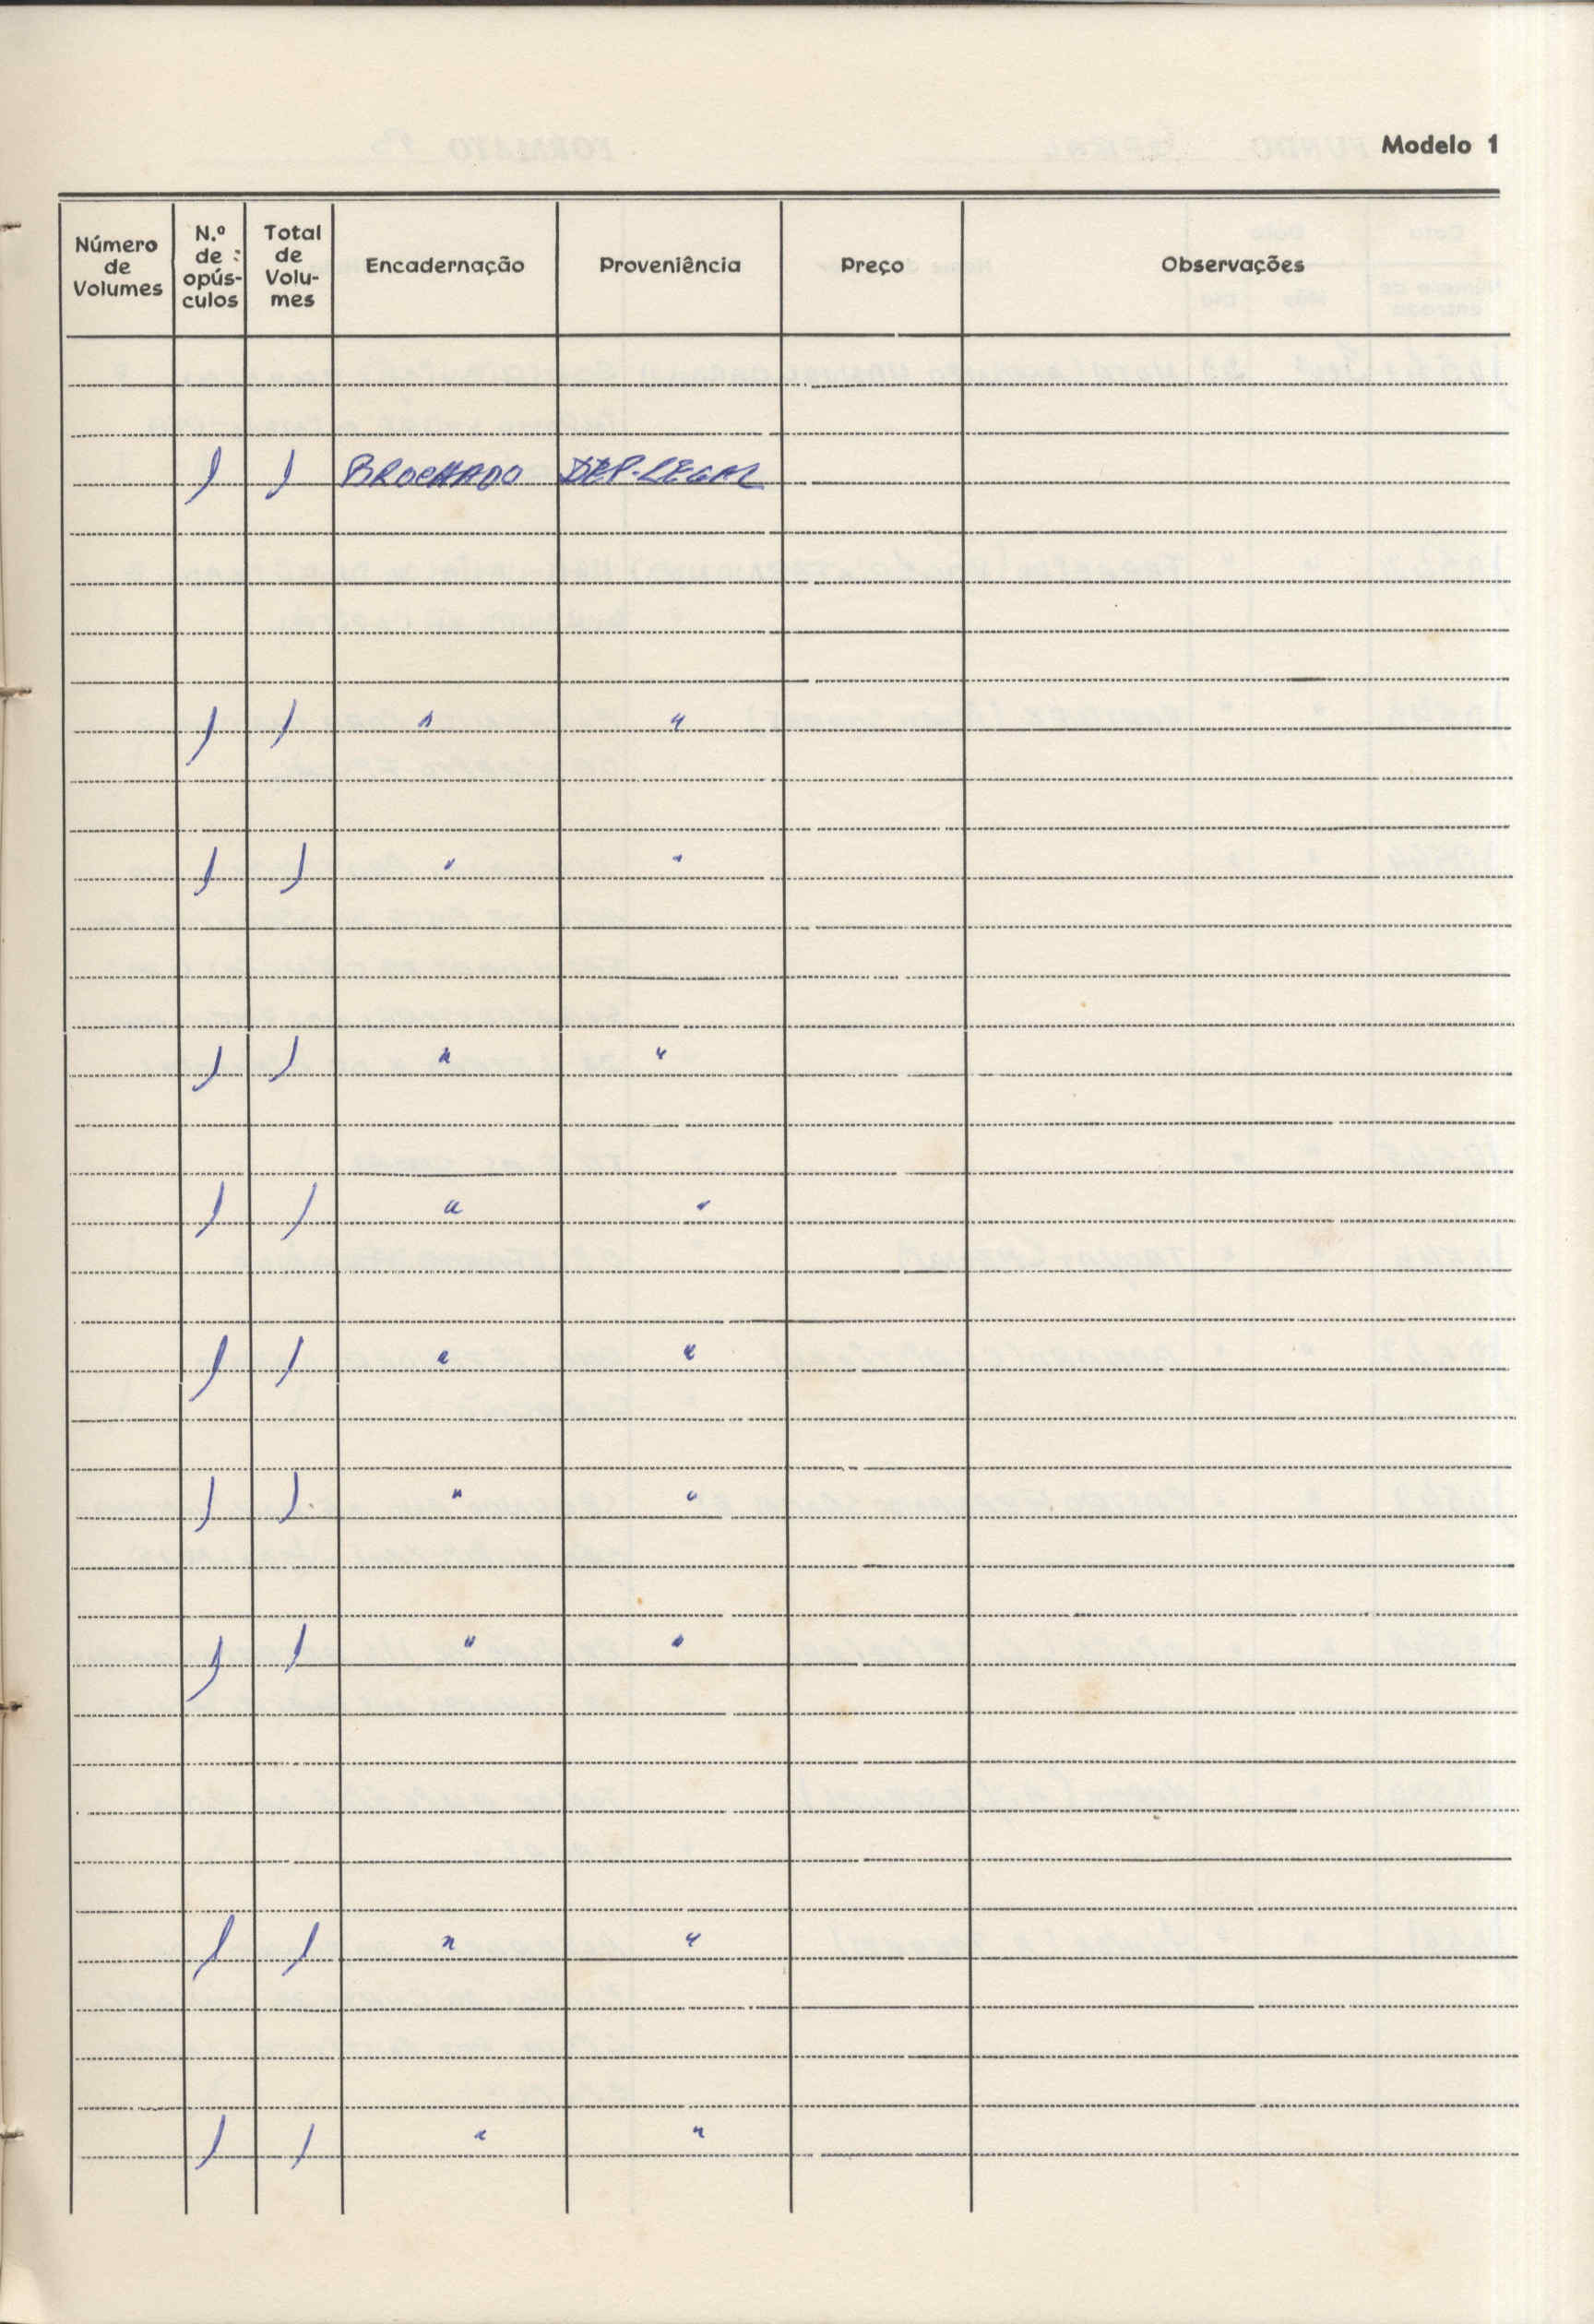 Modelo 1
Número de Volumes | N.º de opús- culos | Total de Volu- mes | Encadernação | Proveniência | Preço | Observações
1 1 BROCHADO DEP. LEGAL
1 1 " "
1 1 " "
1 1 " "
1 1 " "
1 1 " "
1 1 " "
1 1 " "
1 1 " "
1 1 " "